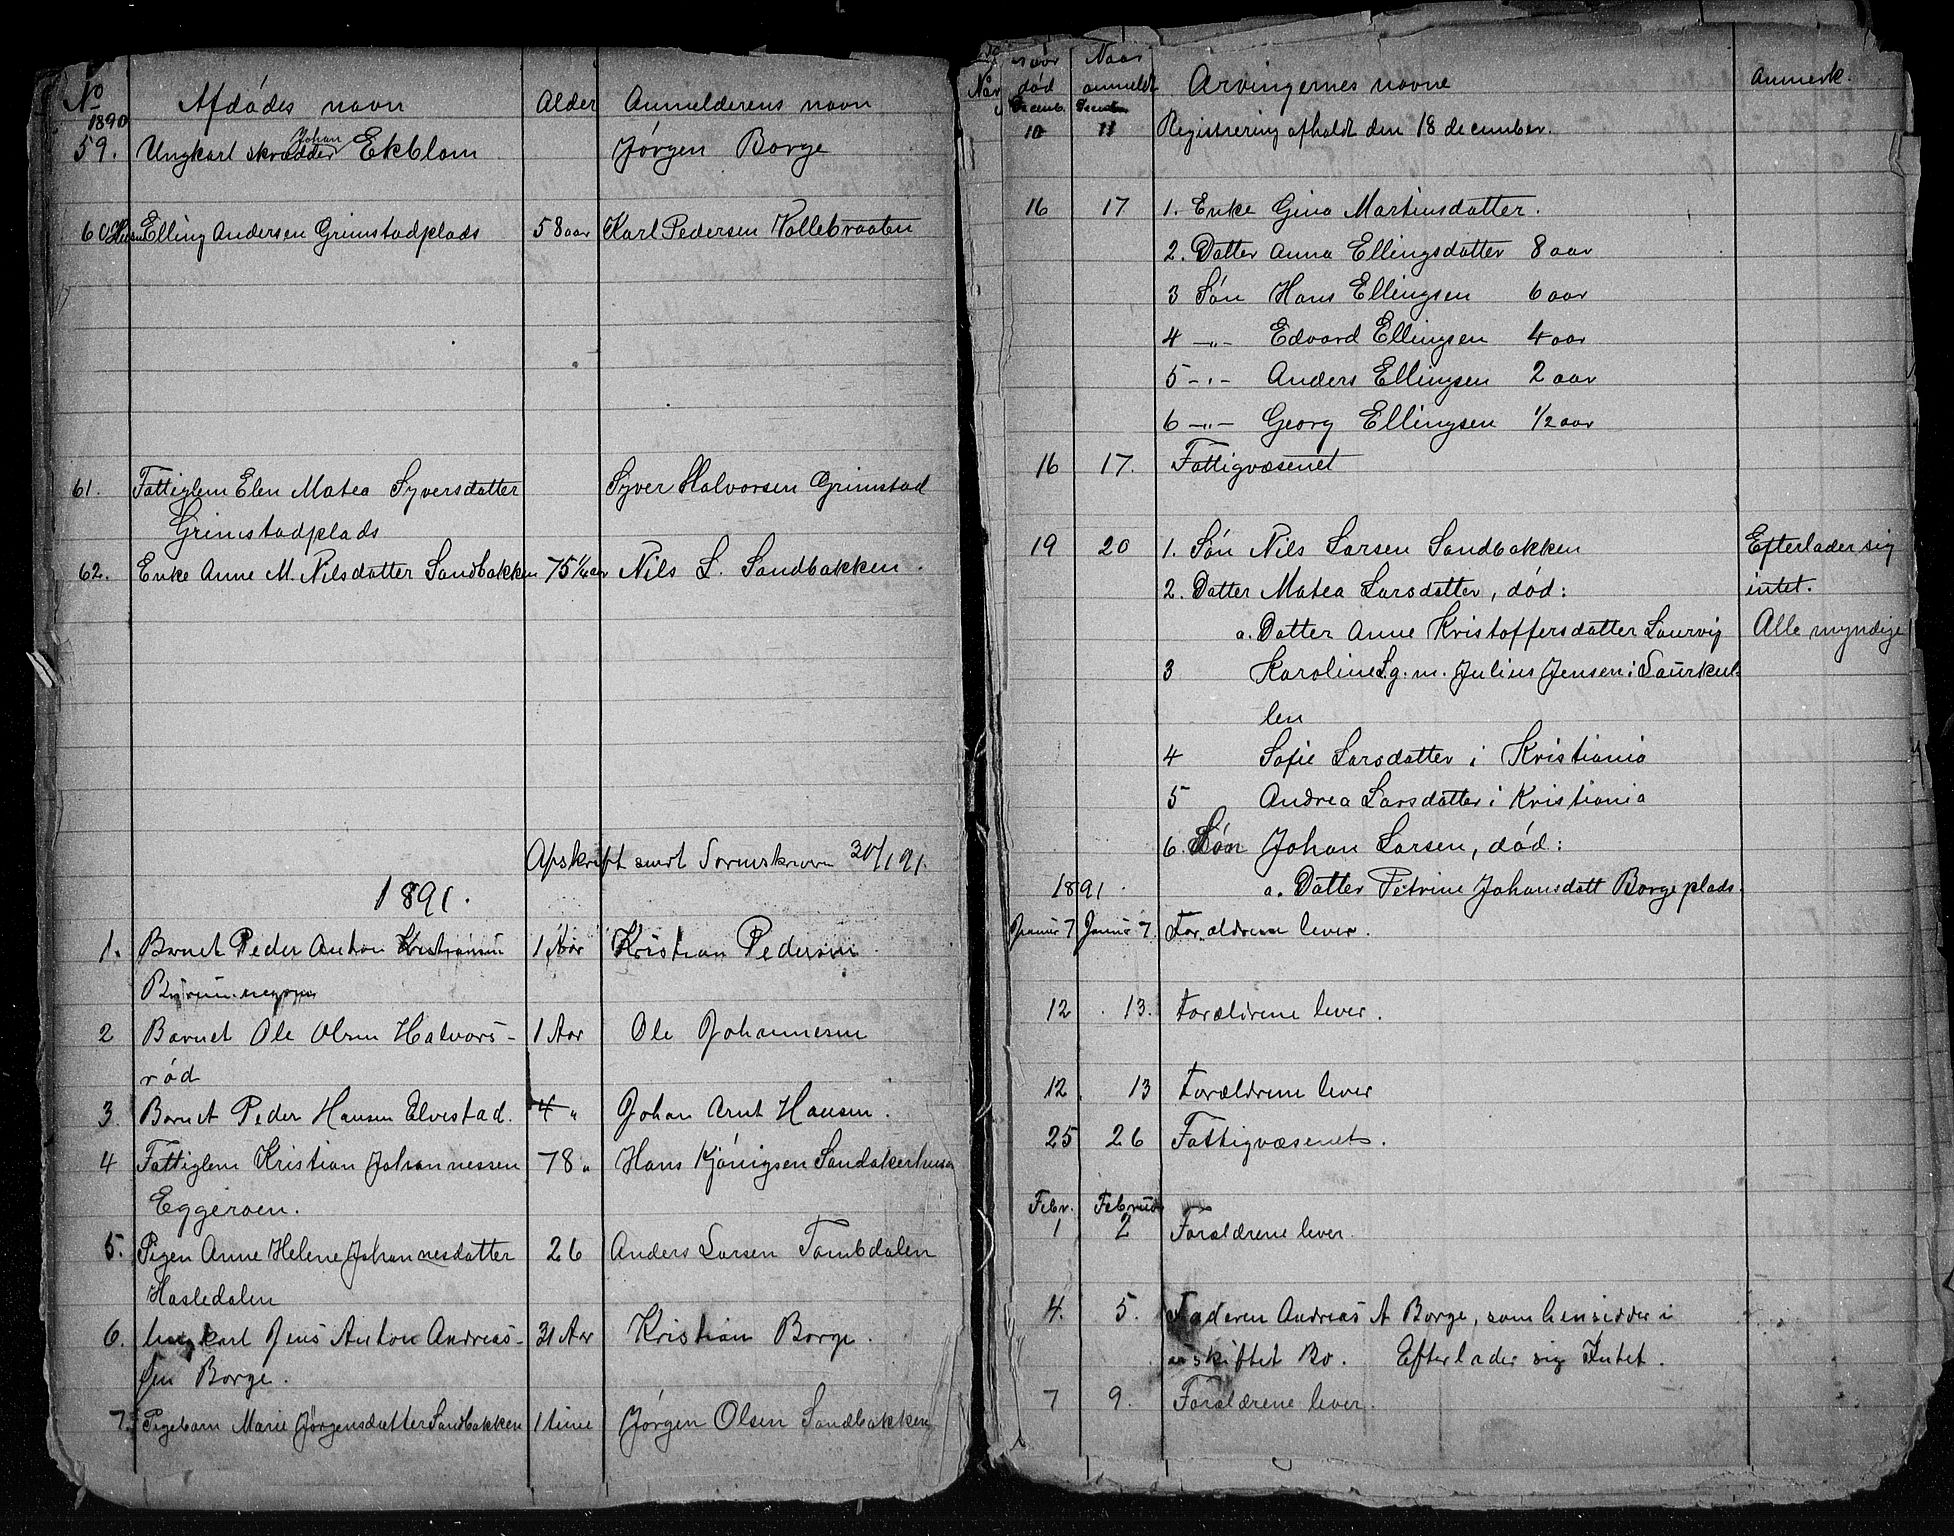 No Afdødes navn Alder Anmelderens navn
1890
59. Ungkarl skrædder Johan Ekblom Jørgen Borge
60 Elling Andersen Grimstadplads 58 aar Karl Pedersen Kollebraaten
61. Fattiglem Elen Matea Syversdatter Syver Halvorsen Grimstad
Grimstadplads
62. Enke Anne M. Nilsdatter Sandbakken 75 1/4 aar Nils L. Sandbakken.
Afskrift sendt Sorenskriveren 30/1 91.
1891.
1. Barnet Peder Anton Kristiansen 1 Aar Kristian Pedersen
2 Barnet Ole Olsen Halvors- 1 Aar Ole Johannesen
rød
3. Barnet Peder Hansen Elvestad. 4 " Johan Arnt Hansen.
4 Fattiglem Kristian Johannessen 78 " Hans Kjønigsen Sandakerhusen
Eggeroen.
5. Pigen Anne Helene Johannesdatter 26 Anders Larsen Tombdalen
Hasledalen
6. Ungkarl Jens Anton Andreas- 31 Aar Kristian Borge.
sen Borge.
7. Pigebarn Marie Jørgensdatter Sandbakken 1 time Jørgen Olsen Sandbakken
Naar død Naar anmeldt Arvingernes navne Anmerk.
Decemb. Decemb.
10 11 Registrering afholdt den 18 december.
16 17 1. Enke Gina Martinsdatter.
2. Datter Anna Ellingsdatter 8 aar
3 Søn Hans Ellingsen 6 aar
4 -"- Edvard Ellingsen 4 aar
5 -"- Anders Ellingsen 2 aar
6 -"- Georg Ellingsen 1/2 aar
16 17. Fattigvæsenet
19 20 1. Søn Nils Larsen Sandbakken Efterlader sig
2. Datter Matea Larsdatter, død: intet.
a. Datter Anne Kristoffersdatter Laurvig Alle myndige
3 Karoline L. g. m. Julius Jensen i Saurkul-
len
4 Sofie Larsdatter i Kristiania
5 Andrea Larsdatter i Kristiania
6. Søn Johan Larsen, død:
1891. a. Datter Petrine Johansdatt Borgeplads.
Januar 7 Januar 7 Forældrene lever.
12 13. Forældrene lever.
12. 13 Forældrene lever
25 26 Fattigvæsenet.
Febr. Februar
1 2 Forældrene lever.
4. 5. Faderen Andreas A Borge, som hensidder i
uskiftet Bo. Efterlader sig Intet.
7 9. Forældrene lever.